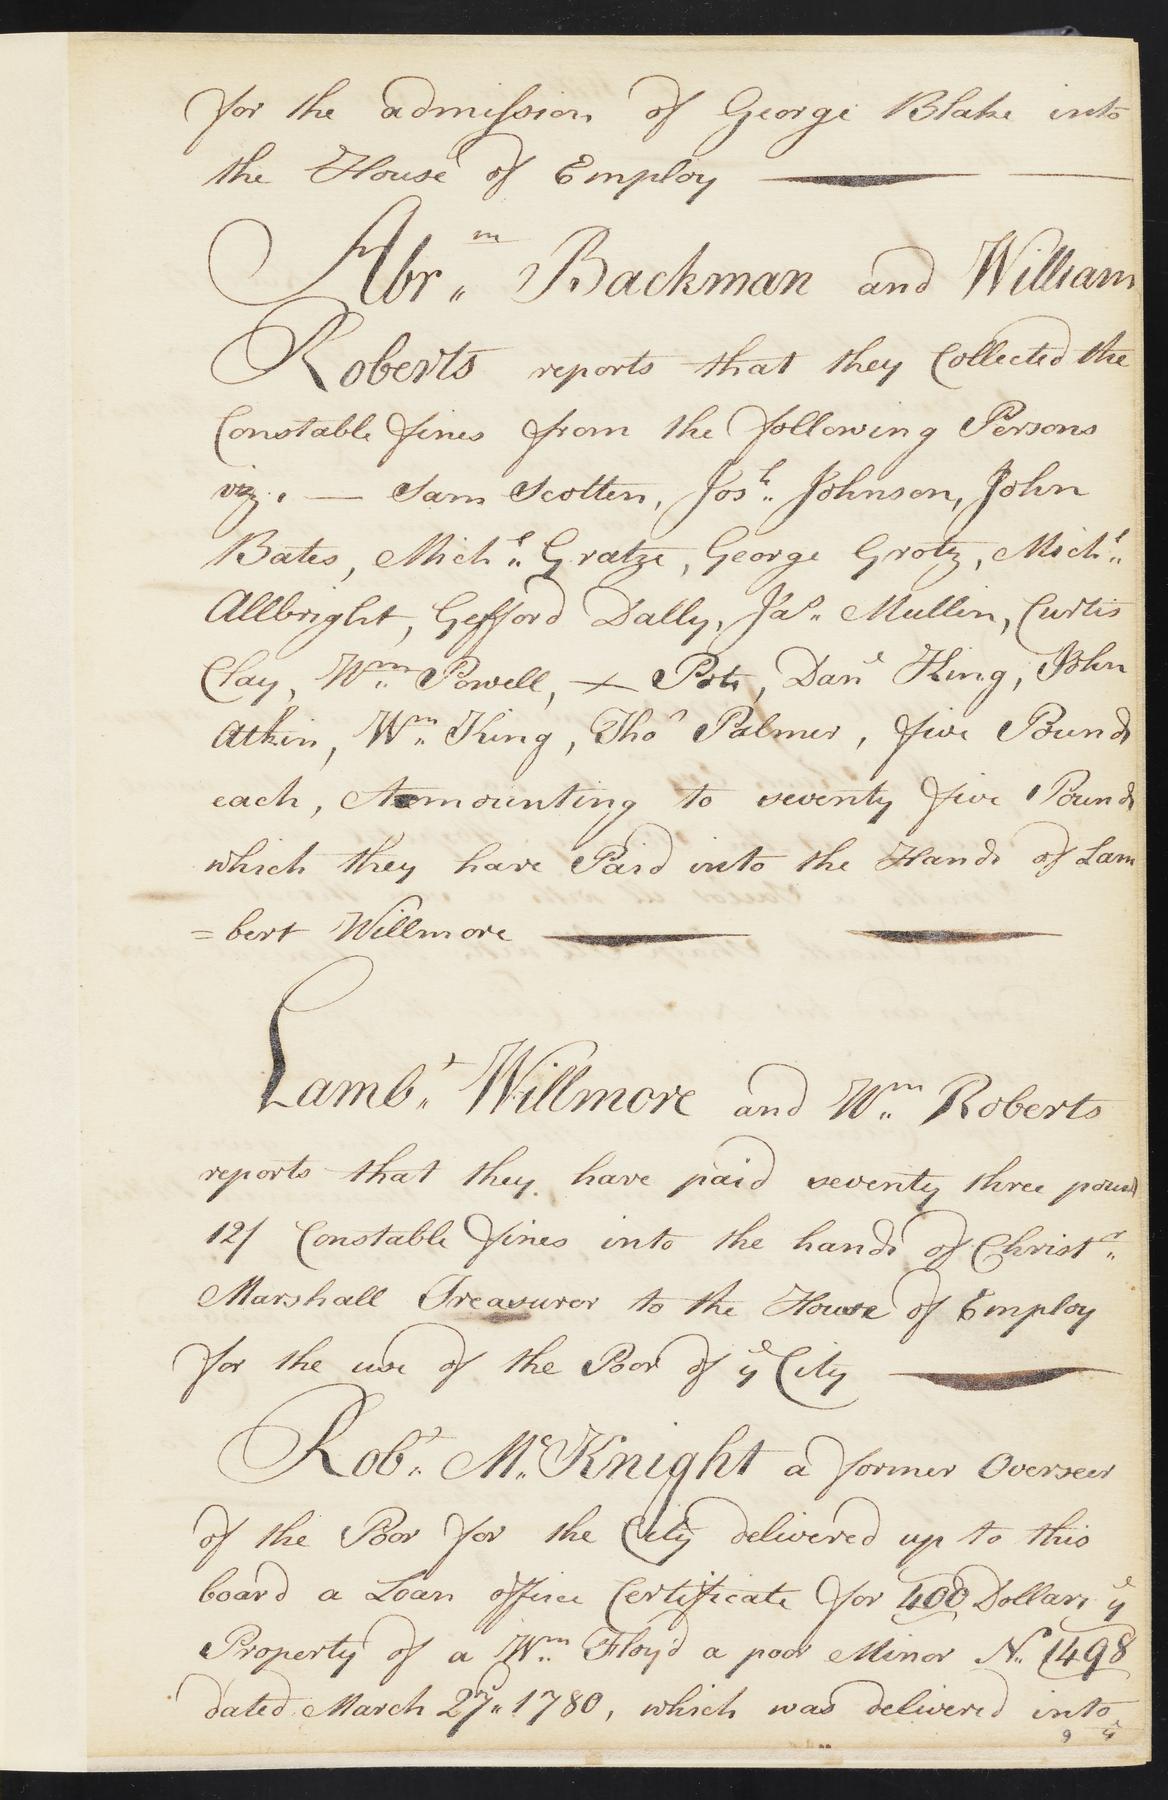 for the admission of George Blake into
the House of Employ
Abrm Backman and William
Roberts reports that they Collected the
Constable fines from the following Persons
viz. — Sam Scotten, Josh Johnson, John
Bates, Michl Gratze, George Grotz, Michl
Allbright, Gefford Dally, Jas Mullin, Curtis
Clay, Wm Powell, × Pots, Danl King, John
Atkin, Wm King, Thos Palmer, five Pounds
each, Ammounting to seventy five Pounds
which they have Paid into the Hands of Lam
=bert Willmore
Lambt Willmore and Wm Roberts
reports that they have paid seventy three pound
12/ Constable fines into the hands of Christr
Marshall Treasurer to the House of Employ
for the use of the Poor of ye City
Robt McKnight a former Overseer
of the Poor for the City delivered up to this
board a Loan office Certificate for 400 Dollars ye
Property of a Wm Floyd a poor Minor No 1498
dated March 27 1780, which was delivered into
9 ye